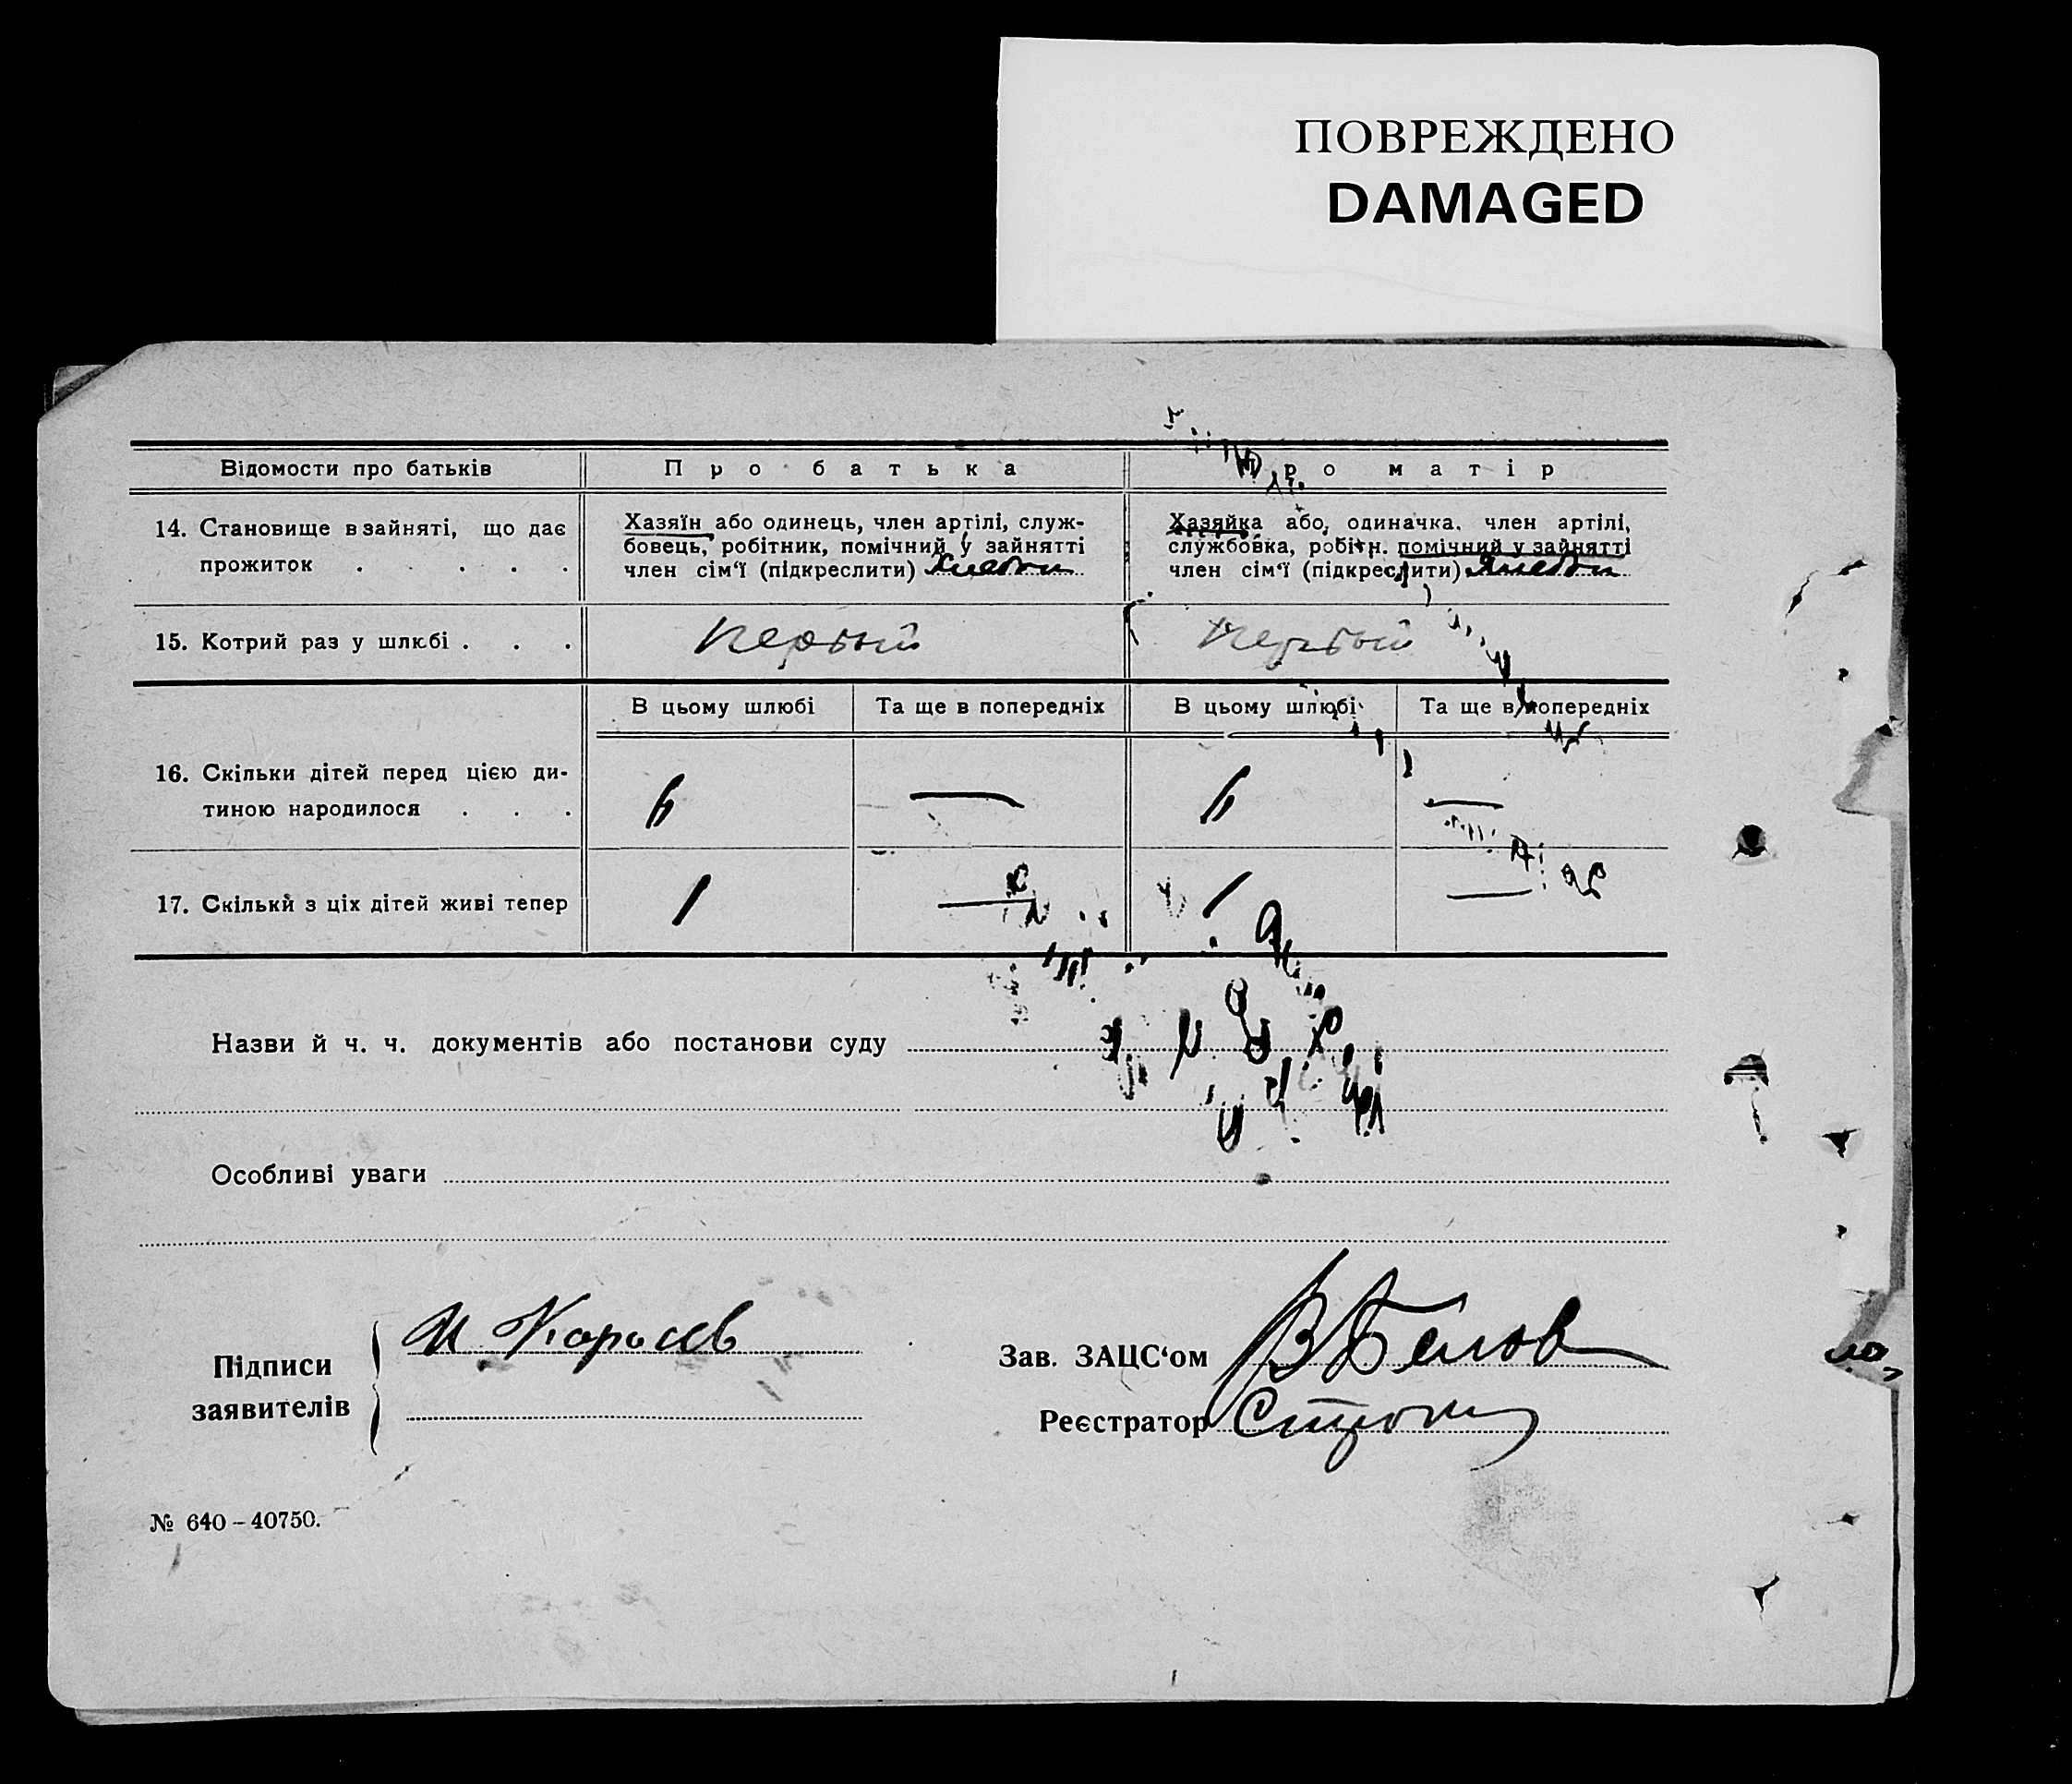 ПОВРЕЖДЕНО
DAMAGED
Відомости про батьків
Про батька
ро матір
14. Становище в зайняті, що дає прожиток . . . .
Хазяїн або одинець, член артілі, служ-
бовець, робітник, помічний у зайнятті
член сім'ї (підкреслити)
Хазяйка або одиначка. член артілі,
службовка, робітн. помічний у зайнятті
член сім'ї (підкреслити)
15. Котрий раз у шлюбі . . .
первый
первый
В цьому шлюбі
Та ще в попередніх
В цьому шлюбі
Та ще в попередніх
16. Скільки дітей перед цією ди-
тиною народилося . . .
6 — 6 —
17. Скільки з ціх дітей живі тепер
1 — 1 —
Назви й ч. ч. документів або постанови суду
Особливі уваги
Підписи
заявителів
И. Карасев
Зав. ЗАЦС'ом
В Белов
Реєстратор
№ 640 – 40750.